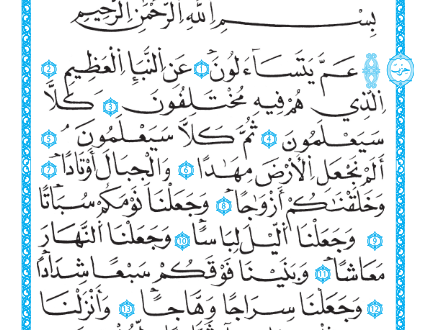 بِسْمِ اللَّهِ الرَّحْمَٰنِ الرَّحِيمِ
عَمَّ يَتَسَآءَلُونَ ١ عَنِ النَّبَإِ الْعَظِيمِ ٢
الَّذِي هُمْ فِيهِ مُخْتَلِفُونَ ٣ كَلَّا
سَيَعْلَمُونَ ٤ ثُمَّ كَلَّا سَيَعْلَمُونَ ٥
أَلَمْ نَجْعَلِ الْأَرْضَ مِهَادًا ٦ وَالْجِبَالَ أَوْتَادًا ٧
وَخَلَقْنَاكُمْ أَزْوَاجًا ٨ وَجَعَلْنَا نَوْمَكُمْ سُبَاتًا
٩ وَجَعَلْنَا الَّيْلَ لِبَاسًا ١٠ وَجَعَلْنَا النَّهَارَ
مَعَاشًا ١١ وَبَنَيْنَا فَوْقَكُمْ سَبْعًا شِدَادًا
١٢ وَجَعَلْنَا سِرَاجًا وَهَّاجًا ١٣ وَأَنْزَلْنَا